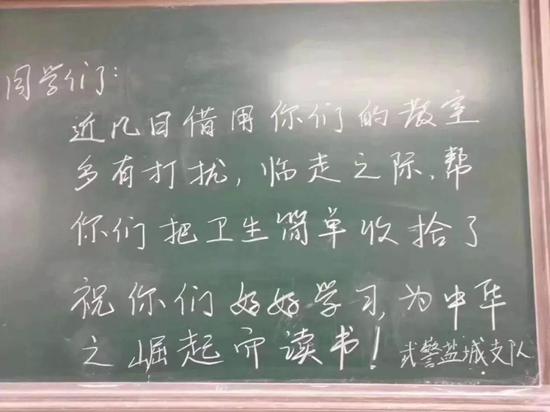 同学们:
近几日借用你们的教室
多有打扰,临走之际、帮
你们把卫生简单收拾了
祝你们好好学习,为中华
之崛起而读书!武警盐城支队